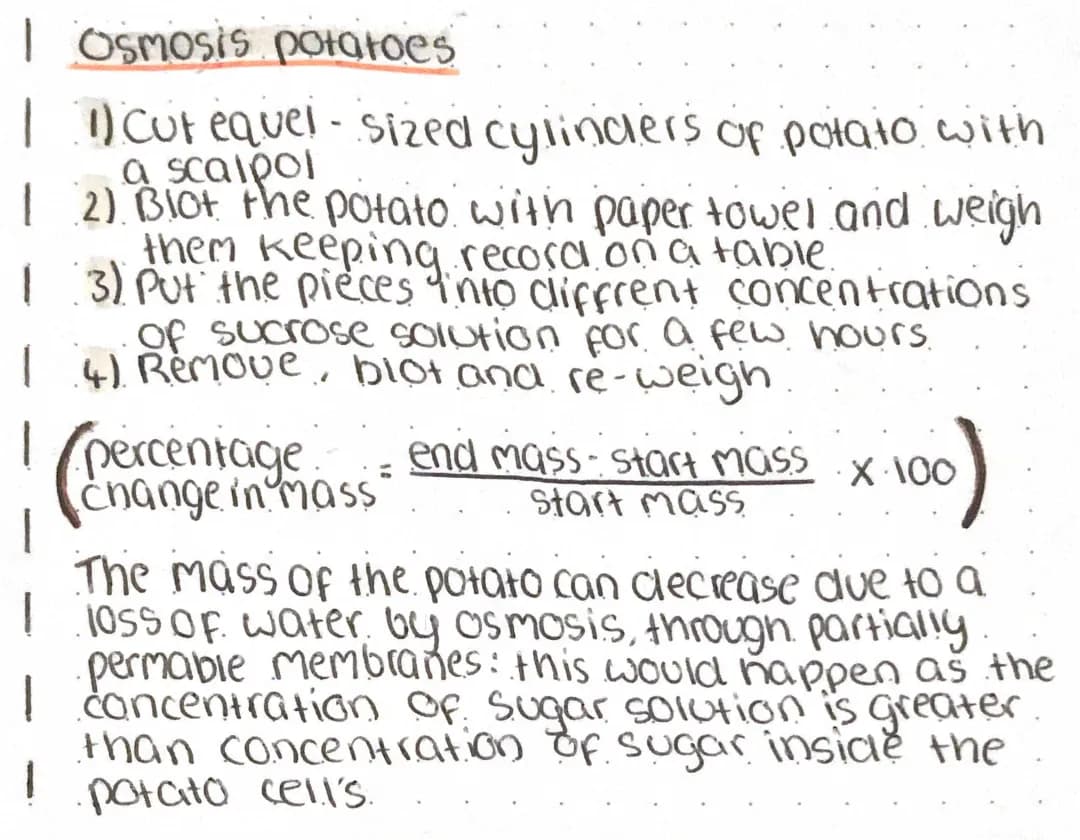 Osmosis potatoes
1) Cut equel - sized cylinders of potato with
a scalpol
2) Blot the potato with paper towel and weigh
them keeping record on a table
3) Put the pieces into diffrent concentrations
of sucrose solution for a few hours
4) Remove, blot and re-weigh
(percentage change in mass = end mass - start mass / start mass x 100)
The mass of the potato can decrease due to a
loss of water by osmosis, through partially
permable membranes: this would happen as the
concentration of sugar solution is greater
than concentration of sugar inside the
potato cell's.